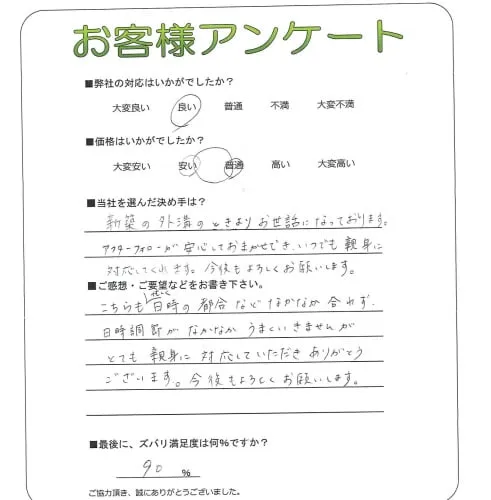 お客様アンケート
■弊社の対応はいかがでしたか？
大変良い 良い 普通 不満 大変不満
■価格はいかがでしたか？
大変安い 安い 普通 高い 大変高い
■当社を選んだ決め手は？
新築の外溝のときよりお世話になっております。
アフターフォローが安心しておまかせでき、いつでも親身に
対応してくれます。今後もよろしくお願いします。
■ご感想・ご要望などをお書き下さい。
こちらも日時の都合などなかなか合わず、
日時調節がなかなかうまくいきませんが
とても親身に対応していただきありがとう
ございます。今後もよろしくお願いします。
■最後に、ズバリ満足度は何％ですか？
90 ％
ご協力頂き、誠にありがとうございました。